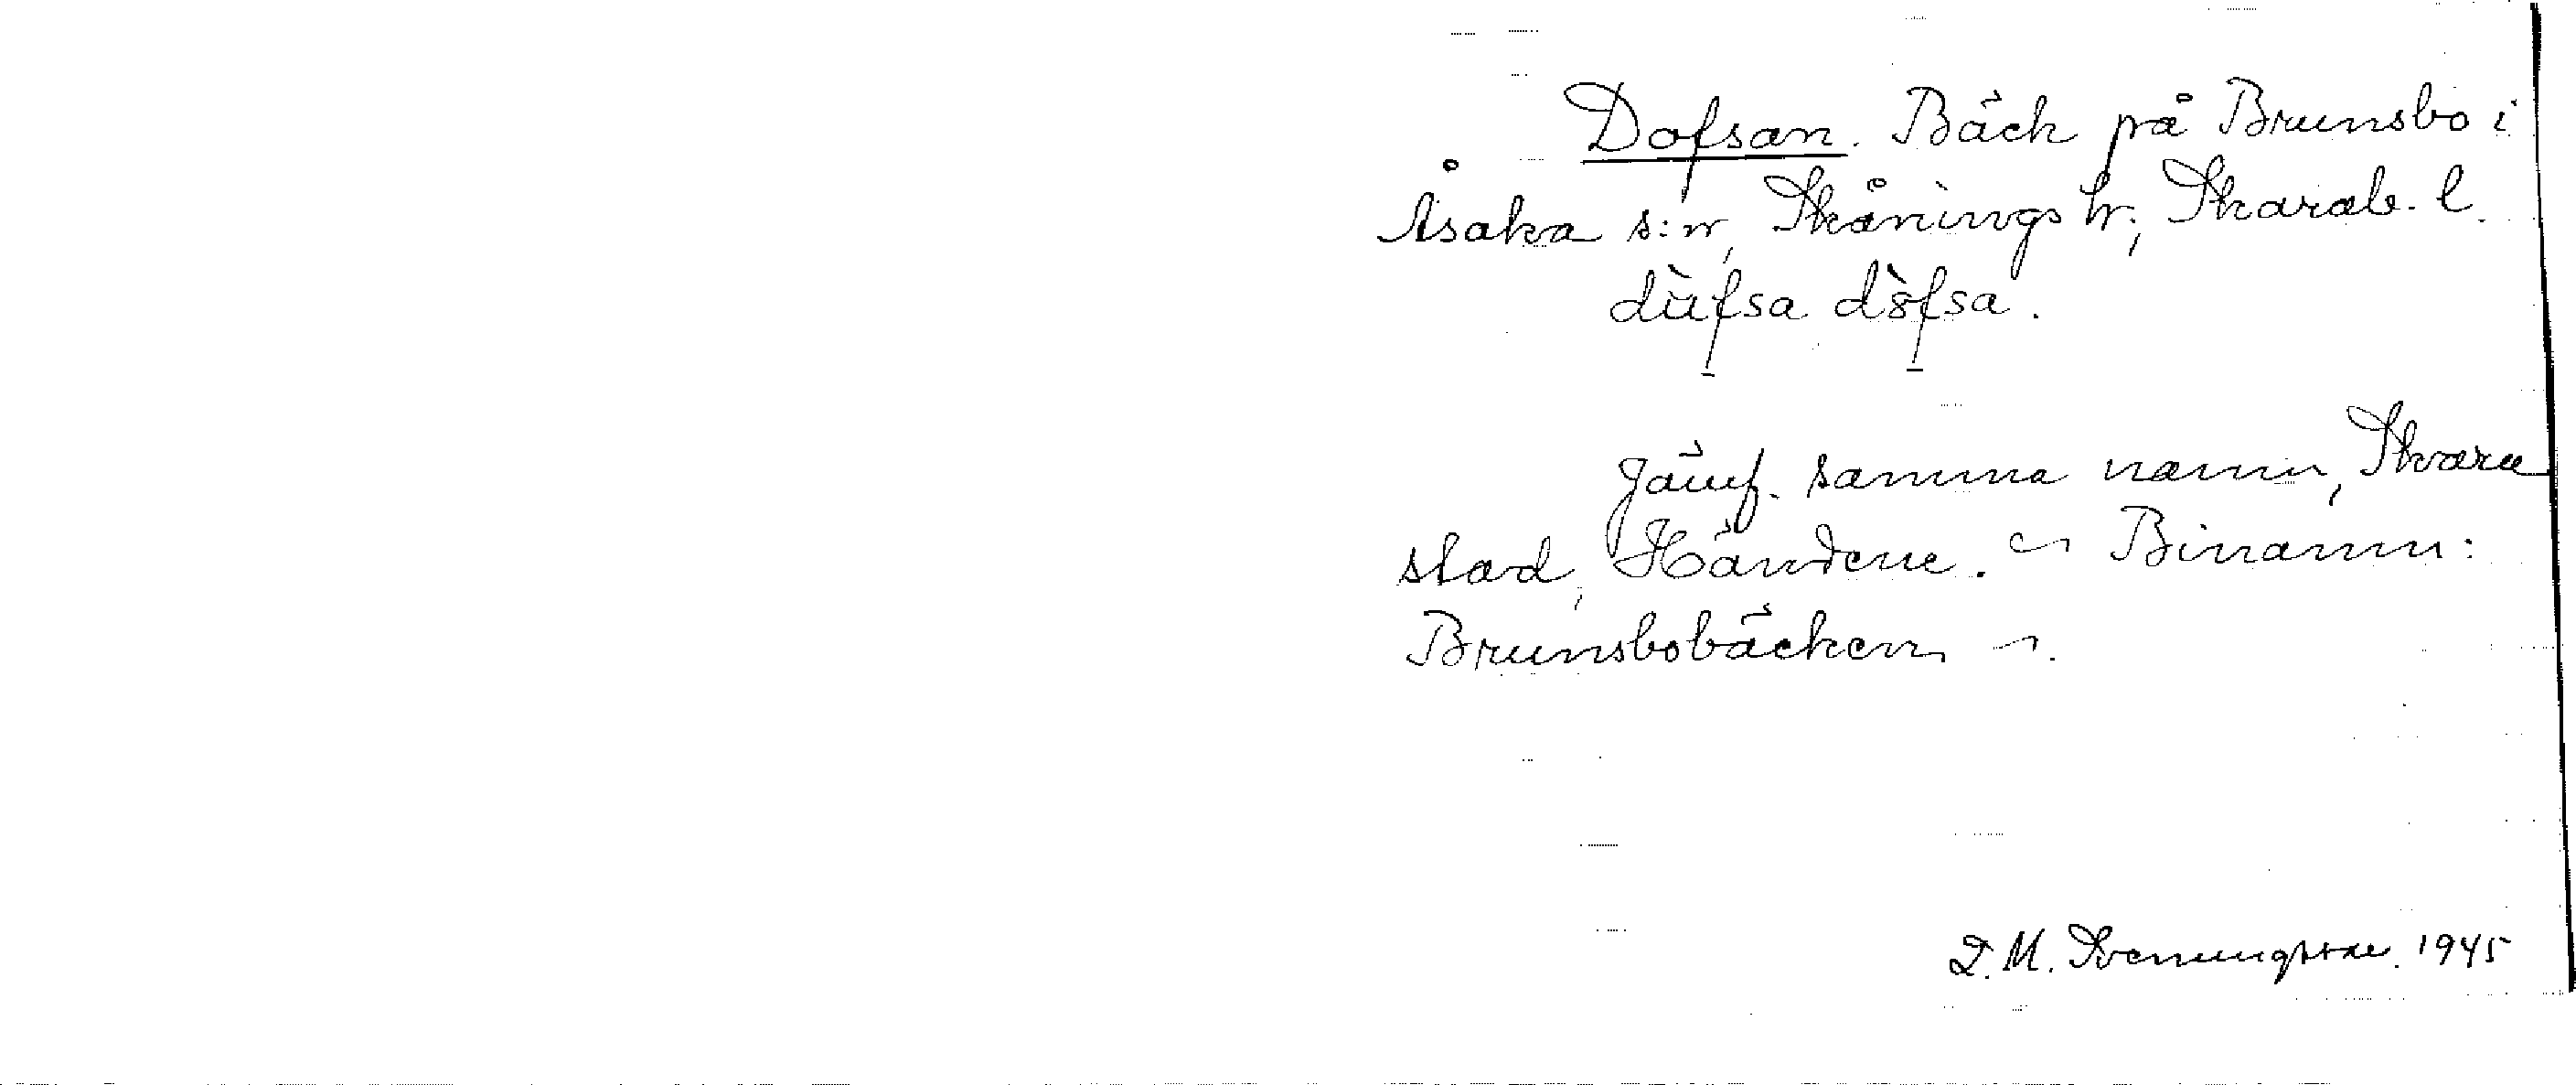 Dofsan. Bäck på Brunsbo i
Åsaka s:n, Skånings hr, Skarab. l.
dùfsa dòfsa.
Jämf. samma namn, Skara
stad, Händene. ~ Binamn:
Brunsbobäcken ~.
D. M. Svenningsson. 1945